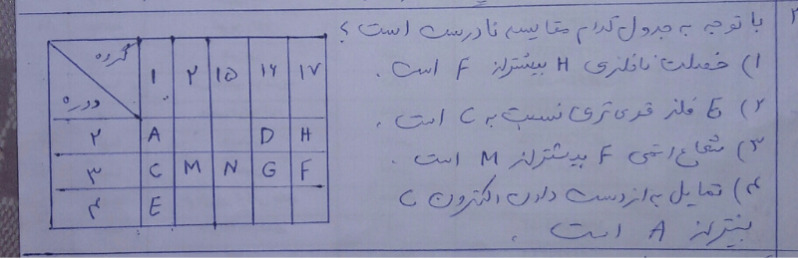 ۲
با توجه به جدول کدام مقایسه نادرست است ؟
۱) خصلت نافلزی H بیشتر از F است .
۲) E فلز قوی تری نسبت به C است .
۳) شعاع اتمی F بیشتر از M است .
۴) تمایل به از دست دادن الکترون C
بیشتر از A است .
گروه ۱ ۲ ۱۵ ۱۶ ۱۷
دوره
۲ A D H
۳ C M N G F
۴ E